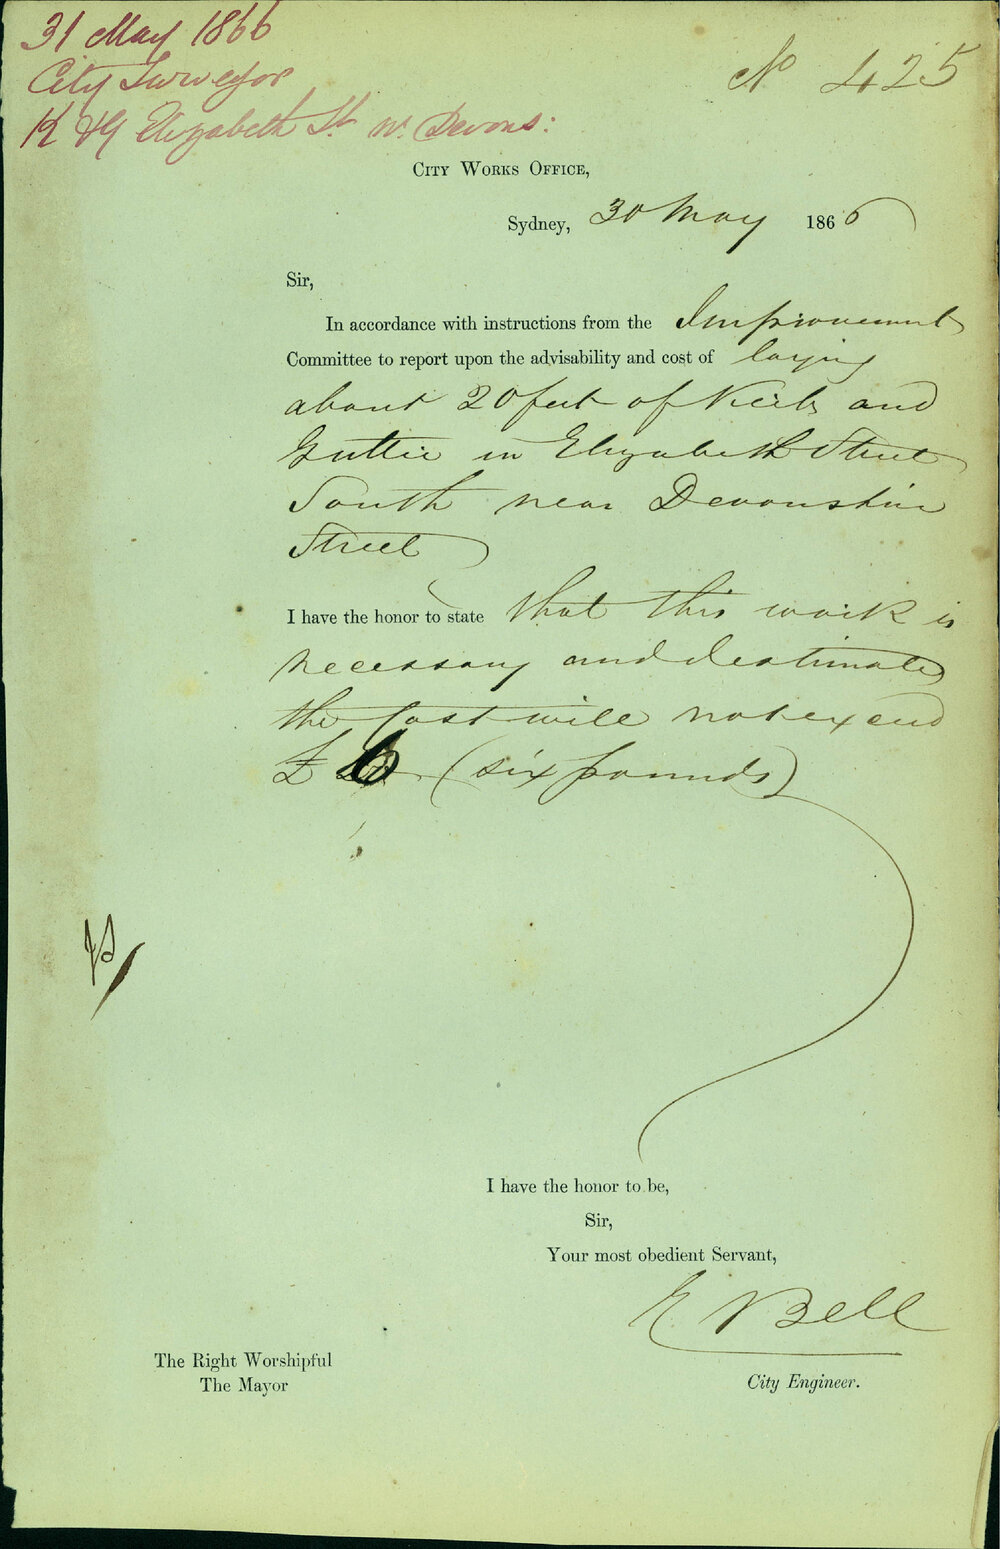 31 May 1866
City Surveyor
K & G Elizabeth St nr. Devons:
No 425
City Works Office,
Sydney, 30 May 1866
Sir,
In accordance with instructions from the Improvement
Committee to report upon the advisability and cost of laying
about 20 feet of Kerb and
Gutter in Elizabeth Street
South near Devonshire
Street
I have the honor to state that this work is
necessary and I estimate
the Cost will not exceed
£ 6 (six pounds)
I have the honor to be,
Sir,
Your most obedient Servant,
E Bell
The Right Worshipful
The Mayor
City Engineer.